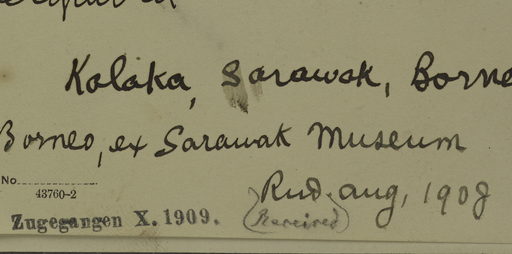 Kalaka, Sarawak, Borne
Borneo, ex Sarawak Museum
No
43760-2
Rec'd. Aug, 1908
Zugegangen X. 1909.
(Received)